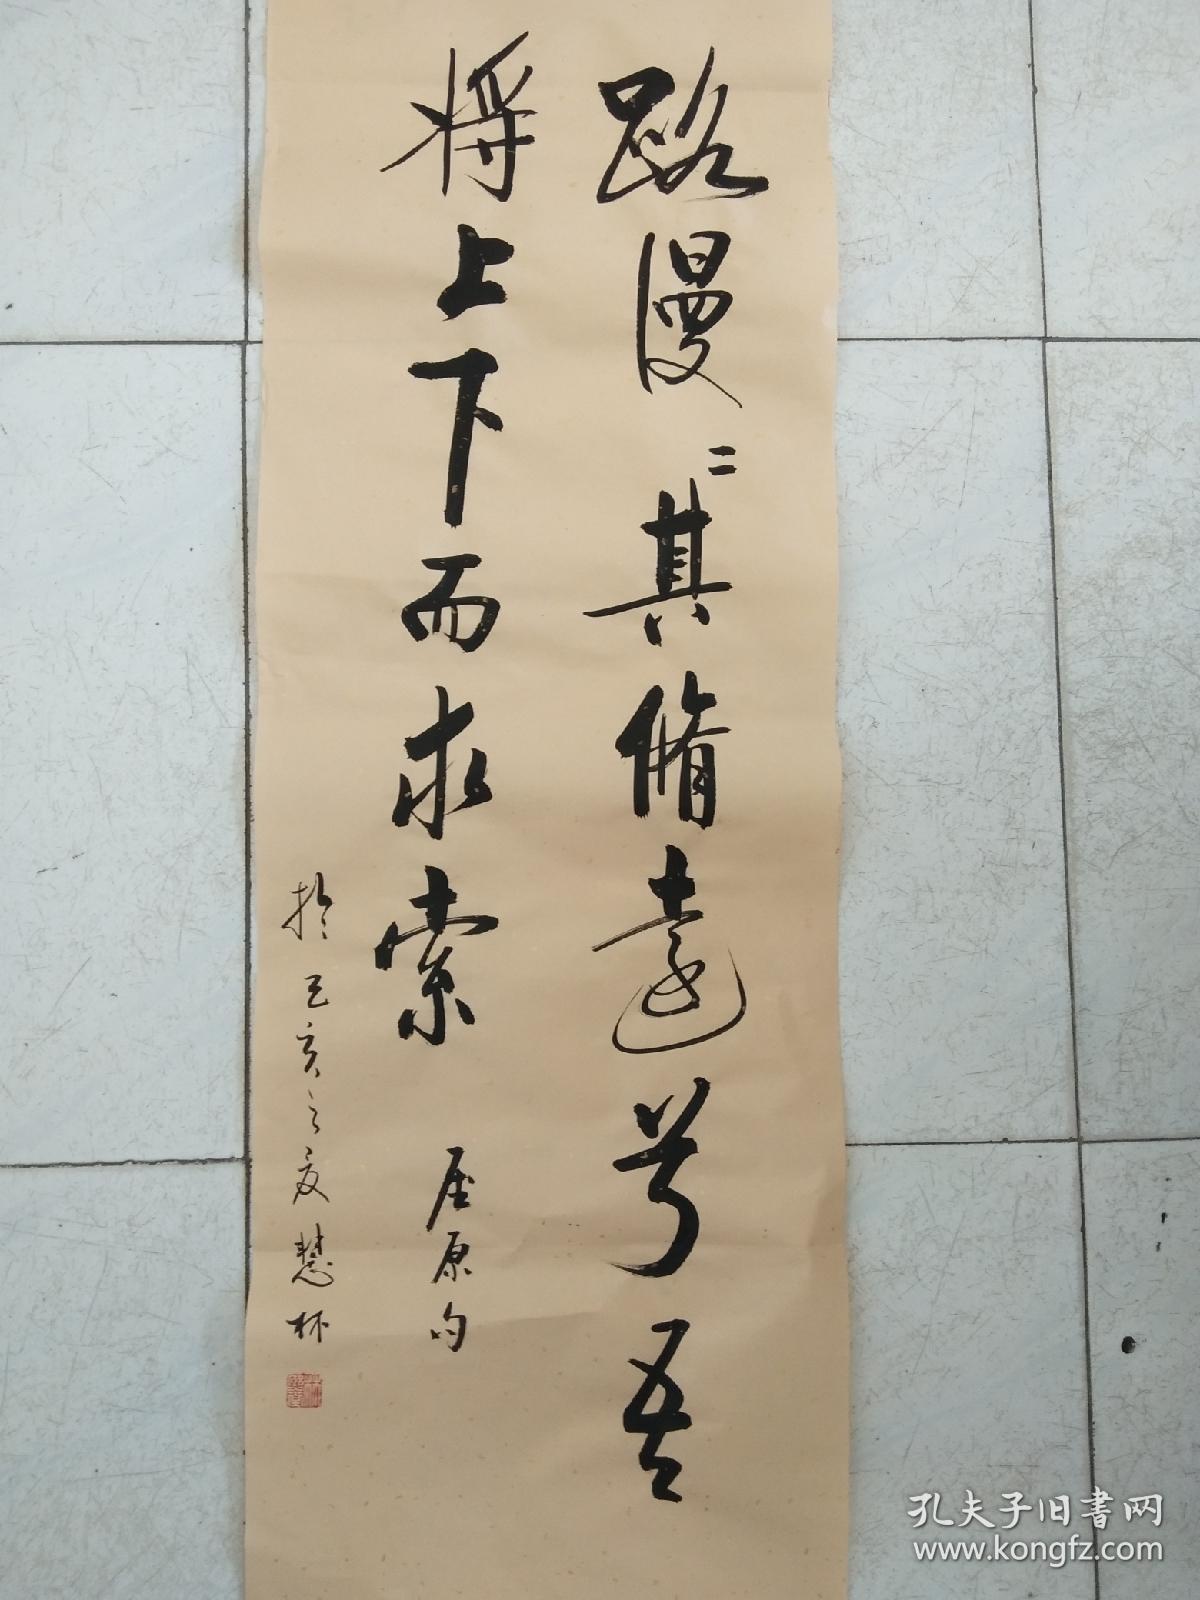 路漫〻其脩遠兮吾
将上下而求索
屈原句
於己亥之夏慧林
孔夫子旧书网
www.kongfz.com